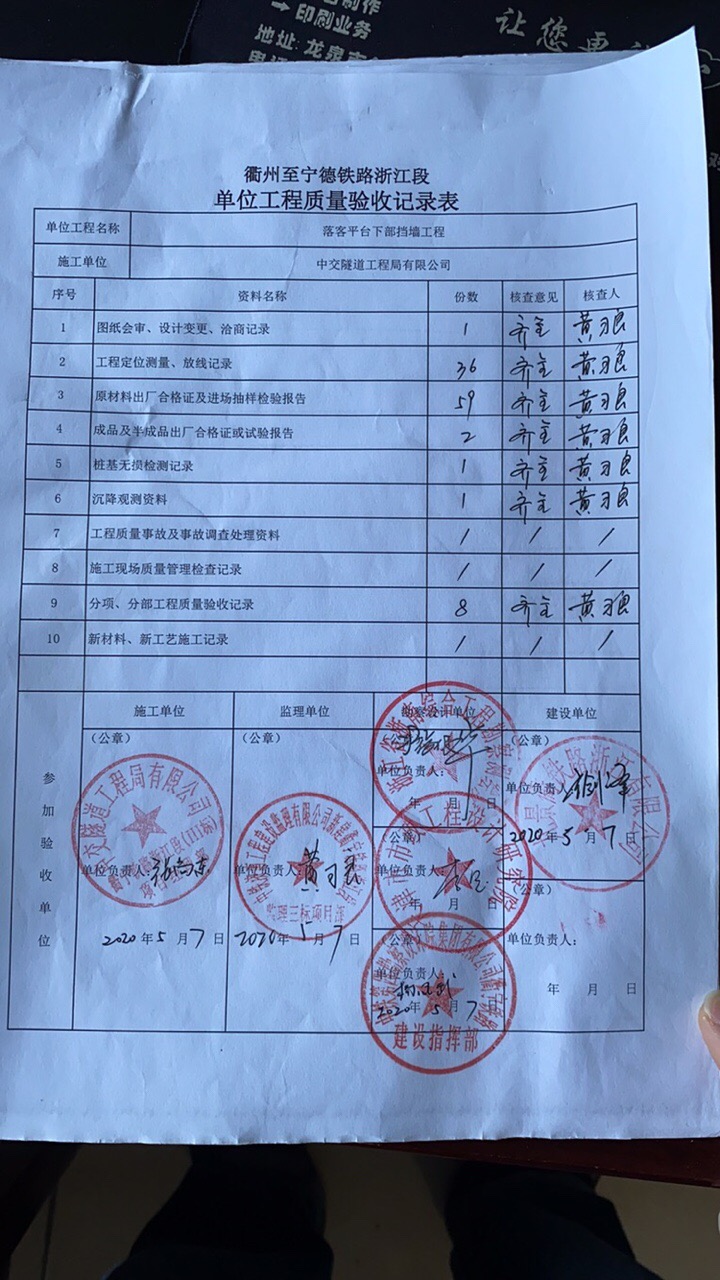 制作
→ 印刷业务
地址: 龙泉市
让您更
衢州至宁德铁路浙江段
单位工程质量验收记录表
单位工程名称 落客平台下部挡墙工程
施工单位 中交隧道工程局有限公司
序号 资料名称 份数 核查意见 核查人
1 图纸会审、设计变更、洽商记录 1 齐全 黄习良
2 工程定位测量、放线记录 36 齐全 黄习良
3 原材料出厂合格证及进场抽样检验报告 59 齐全 黄习良
4 成品及半成品出厂合格证或试验报告 2 齐全 黄习良
5 桩基无损检测记录 1 齐全 黄习良
6 沉降观测资料 1 齐全 黄习良
7 工程质量事故及事故调查处理资料 / / /
8 施工现场质量管理检查记录 / / /
9 分项、分部工程质量验收记录 8 齐全 黄习良
10 新材料、新工艺施工记录 / / /
参加验收单位
施工单位 监理单位 勘察设计单位 建设单位
(公章) (公章)
中交隧道工程局有限公司
单位负责人:
2020年5月7日
单位负责人: 黄习良
监理三标项目部
2020年5月7日
单位负责人:
年 月 日
(公章)
单位负责人:
年 月 日
(公章)
单位负责人:
2020年5月7日
建设指挥部
单位负责人:
2020年5月7日
(公章)
单位负责人:
年 月 日